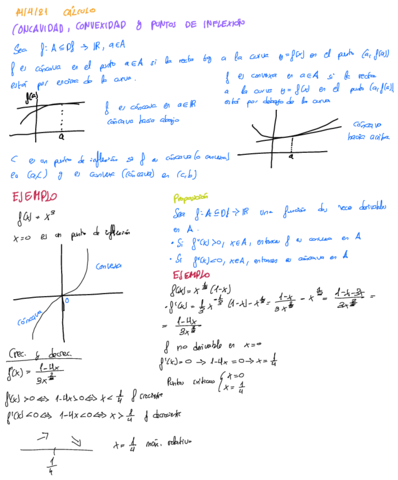 14/4/21 CÁLCULO
CONCAVIDAD, CONVEXIDAD Y PUNTOS DE INFLEXIÓN
Sea f: A ⊆ Df → ℝ, a∈A
f es cóncava en el punto a∈A si la recta tg a la curva y=f(x) en el punto (a, f(a))
está por encima de la curva.
f es convexa en a∈A si la recta
a la curva y=f(x) en el punto (a, f(a))
está por debajo de la curva.
f(a)
a
f es cóncava en a∈ℝ
cóncava hacia abajo
cóncava
hacia arriba
a
C es un punto de inflexión si f es cóncava (o convexa)
en (a,c) y es convexa (cóncava) en (c,b)
EJEMPLO
f(x) = x
x=0 es un punto de inflexión
convexa
cóncava
0
Proposición
Sea f: A ⊆ Df → ℝ una función dos veces derivable
en A.
· Si f''(x)>0, x∈A, entonces f es convexa en A
· Si f''(x)<0, x∈A, entonces es cóncava en A
EJEMPLO
f(x) = x (1-x)
f no derivable en x=
f'(x)=0 → 1-4x=0 → x=1/4
Puntos críticos { x=0
x=1/4
Crec. y decrec.
f'(x) = 1-4x
f'(x)>0 ⇔ 1-4x>0 ⇔ x<1/4 f creciente
f'(x)<0 ⇔ 1-4x<0 ⇔ x>1/4 f decreciente
1/4
x=1/4 máx. relativo